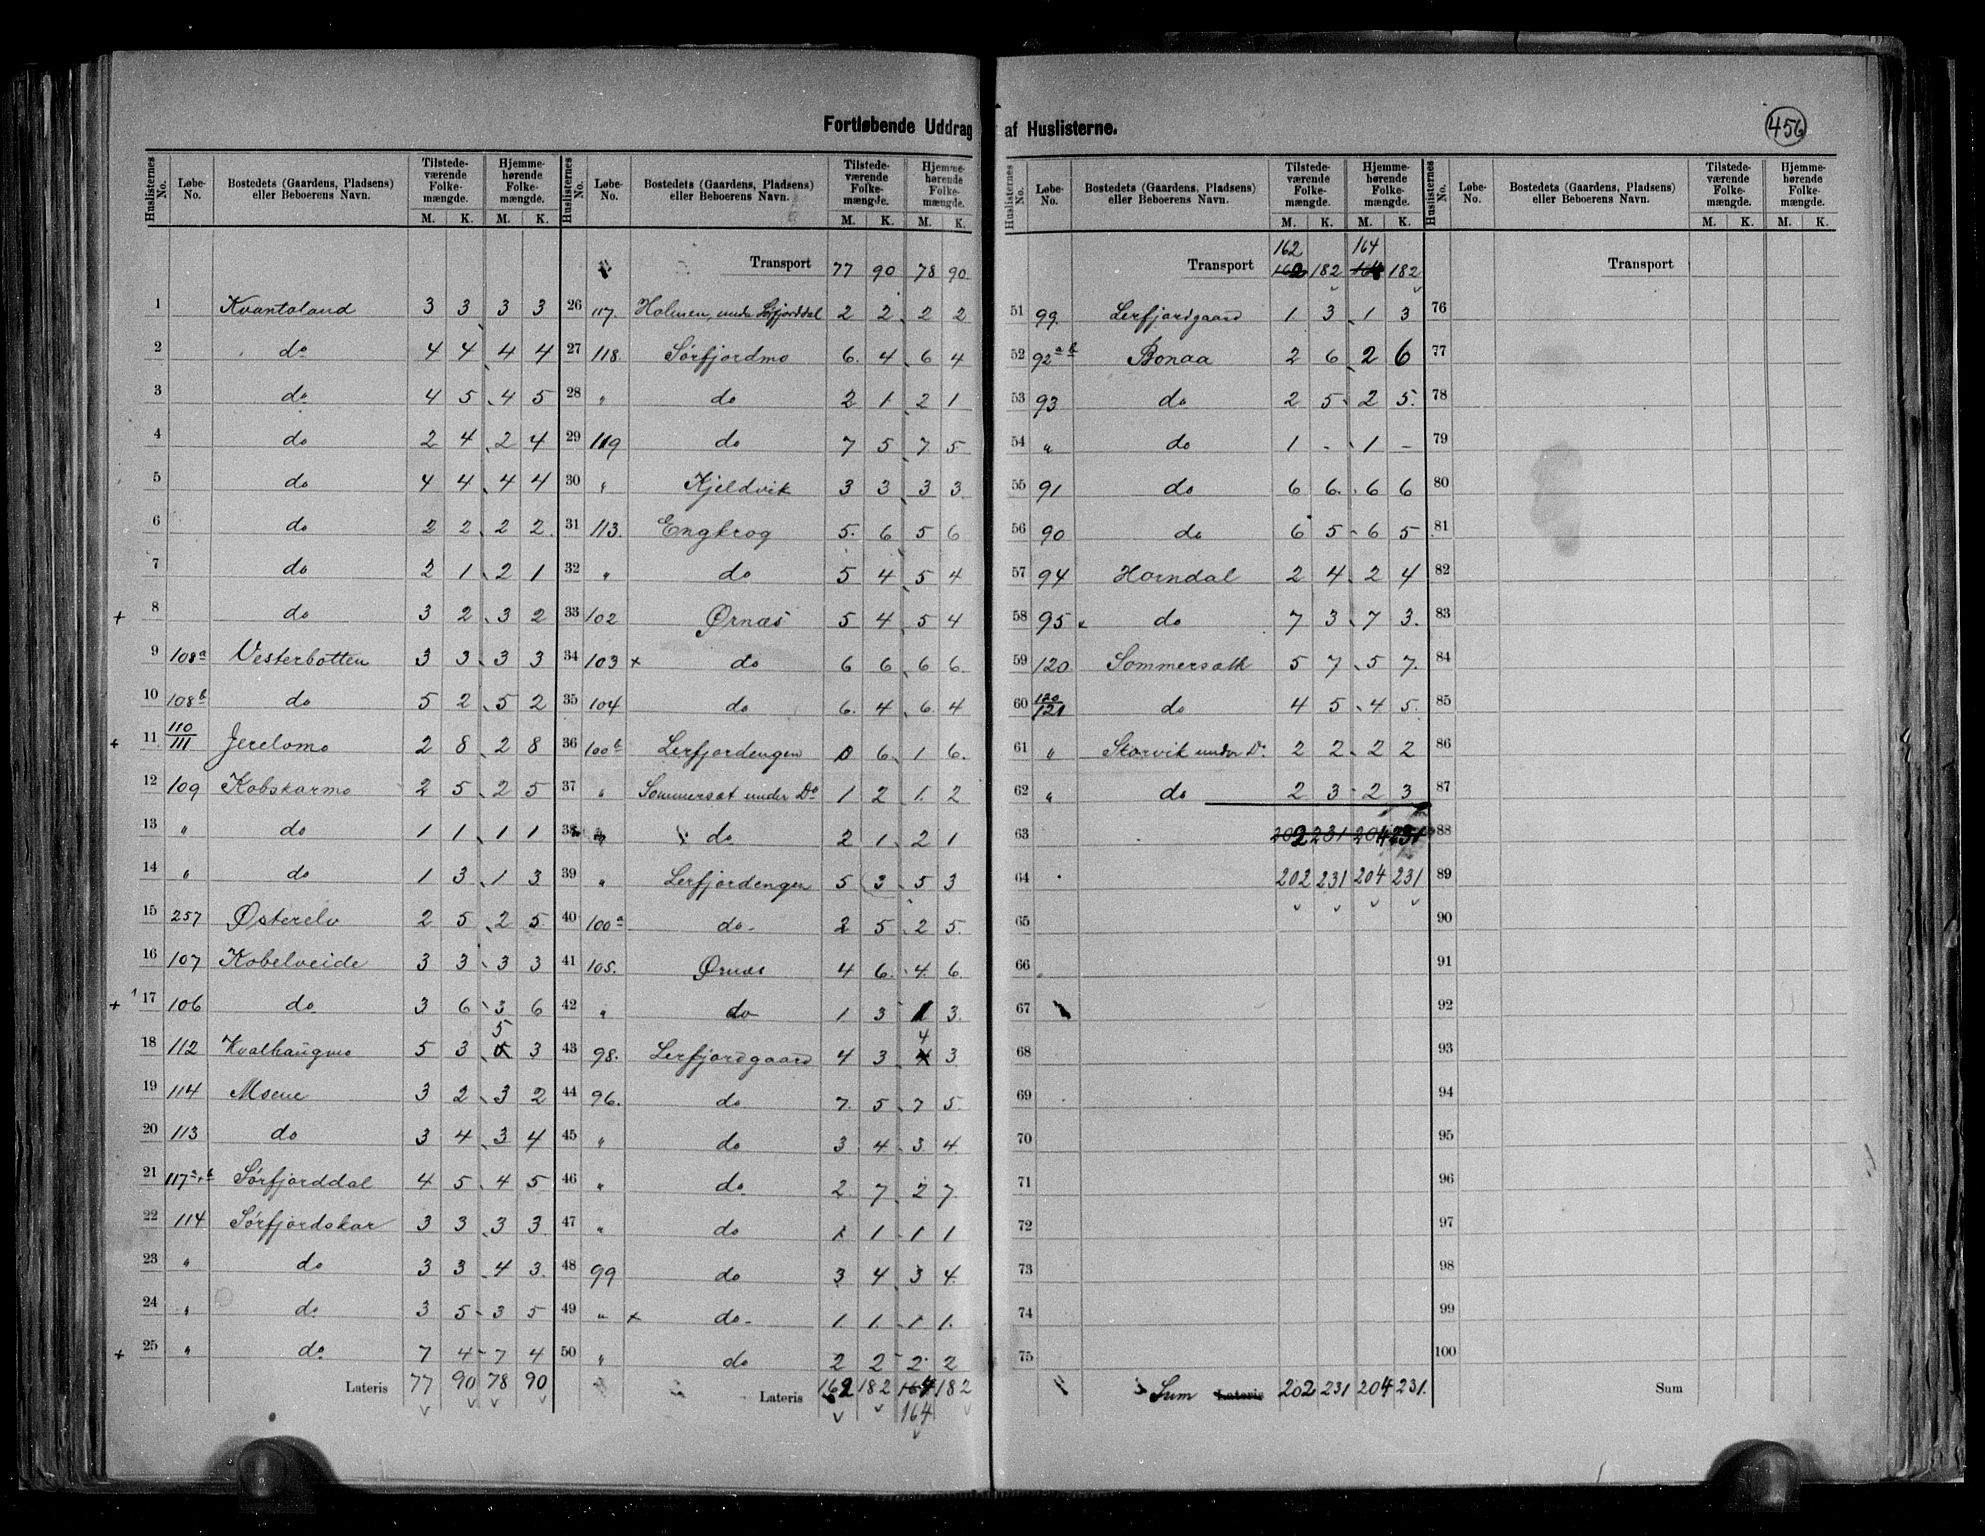 Fortløbende Uddrag af Huslisterne.
456
Huslisternes No. | Løbe-No. | Bostedets (Gaardens, Pladsens) eller Beboerens Navn. | Tilstedeværende Folkemængde. M. K. | Hjemmehørende Folkemængde. M. K.
1 Kvantoland 3 3 3 3
2 do 4 4 4 4
3 do 4 5 4 5
4 do 2 4 2 4
5 do 4 4 4 4
6 do 2 2 2 2
7 do 2 1 2 1
+ 8 do 3 2 3 2
9 108a Vesterbotten 3 3 3 3
10 108b do 5 2 5 2
+ 11 110/111 Jerelomo 2 8 2 8
12 109 Kobskarmo 2 5 2 5
13 " do 1 1 1 1
14 " do 1 3 1 3
15 257 Østerelv 2 5 2 5
16 107 Kobelveide 3 3 3 3
+ 17 106 do 3 6 3 6
18 112 Kvalhaugmo 5 3 5 3
19 114 Moene 3 2 3 2
20 113 do 3 4 3 4
21 117a+b Sørfjorddal 4 5 4 5
22 114 Sørfjordskar 3 3 3 3
23 " do 3 3 4 3
24 " do 3 5 3 5
+ 25 " do 7 4 7 4
Lateris 77 90 78 90
Huslisternes No. | Løbe-No. | Bostedets (Gaardens, Pladsens) eller Beboerens Navn. | Tilstedeværende Folkemængde. M. K. | Hjemmehørende Folkemængde. M. K.
Transport 77 90 78 90
26 117. Holmen, under Sørfjorddal 2 2 2 2
27 118. Sørfjordmo 6. 4 6 4
28 " do 2 1 2 1
29 119 do 7 5 7 5
30 " Kjeldvik 3 3 3 3
31 113. Engkrog 5. 6 5 6
32 " do 5 4 5 4
33 102 Ørnæs 5 4 5 4
34 103 x do 6 6 6 6
35 104 do 6. 4 6. 4
36 100b Lerfjordengen 0 6 1 6.
37 " Sommersæt under Do 1 2 1. 2
38 " do 2 1 2 1
39 " Lerfjordengen 5 3 5 3
40 100a do 2 5 2 5.
41 105. Ørnæs 4 6. 4. 6.
42 " do 1 3 1 3.
43 98. Lerfjordgaard 4 3 4 3
44 96. do 7. 5 7 5.
45 " do 3 4 3. 4
46 " do 2. 7 2 7.
47 " do 1 1 1 1
48 99 do 3 4 3 4.
49 " x do 1. 1. 1 1.
50 " do 2 2 2 2
Lateris 162 182 164 182
164
Huslisternes No. | Løbe-No. | Bostedets (Gaardens, Pladsens) eller Beboerens Navn. | Tilstedeværende Folkemængde. M. K. | Hjemmehørende Folkemængde. M. K.
162 164
Transport 162 182 164 182
51 99. Lerfjordgaard 1. 3 1 3
52 92a b Bonaa 2 6 2 6
53 93 do 2 5 2 5.
54 " do 1 - 1 -
55 91 do 6 6. 6 6
56 90 do 6 5 6 5
57 94 Horndal 2 4 2 4
58 95 do 7 3 7 3.
59 120 Sommersæth 5 7 5 7.
60 120/121 do 4 5 4 5.
61 " Storvik under Do 2 2 2 2
62 " do 2 3 2 3
63 202 231 204 231
64 202 231 204 231
65
66
67
68
69
70
71
72
73
74
75
Sum Lateris 202 231 204 231.
Huslisternes No. | Løbe-No. | Bostedets (Gaardens, Pladsens) eller Beboerens Navn. | Tilstedeværende Folkemængde. M. K. | Hjemmehørende Folkemængde. M. K.
Transport
76
77
78
79
80
81
82
83
84
85
86
87
88
89
90
91
92
93
94
95
96
97
98
99
100
Sum